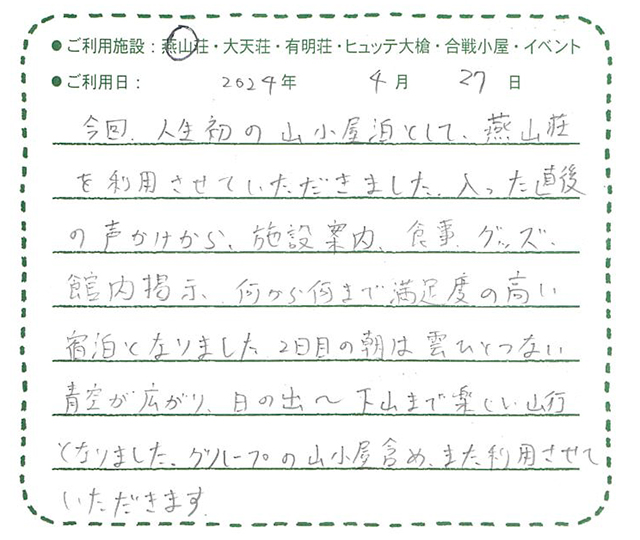 ●ご利用施設：燕山荘・大天荘・有明荘・ヒュッテ大槍・合戦小屋・イベント
●ご利用日： 2024年 4月 27日
今回、人生初の山小屋泊として、燕山荘
を利用させていただきました。入った直後
の声かけから、施設案内、食事、グッズ、
館内掲示、何から何まで満足度の高い
宿泊となりました。2日目の朝は雲ひとつない
青空が広がり、日の出〜下山まで楽しい山行
となりました。グループの山小屋含め、また利用させて
いただきます。